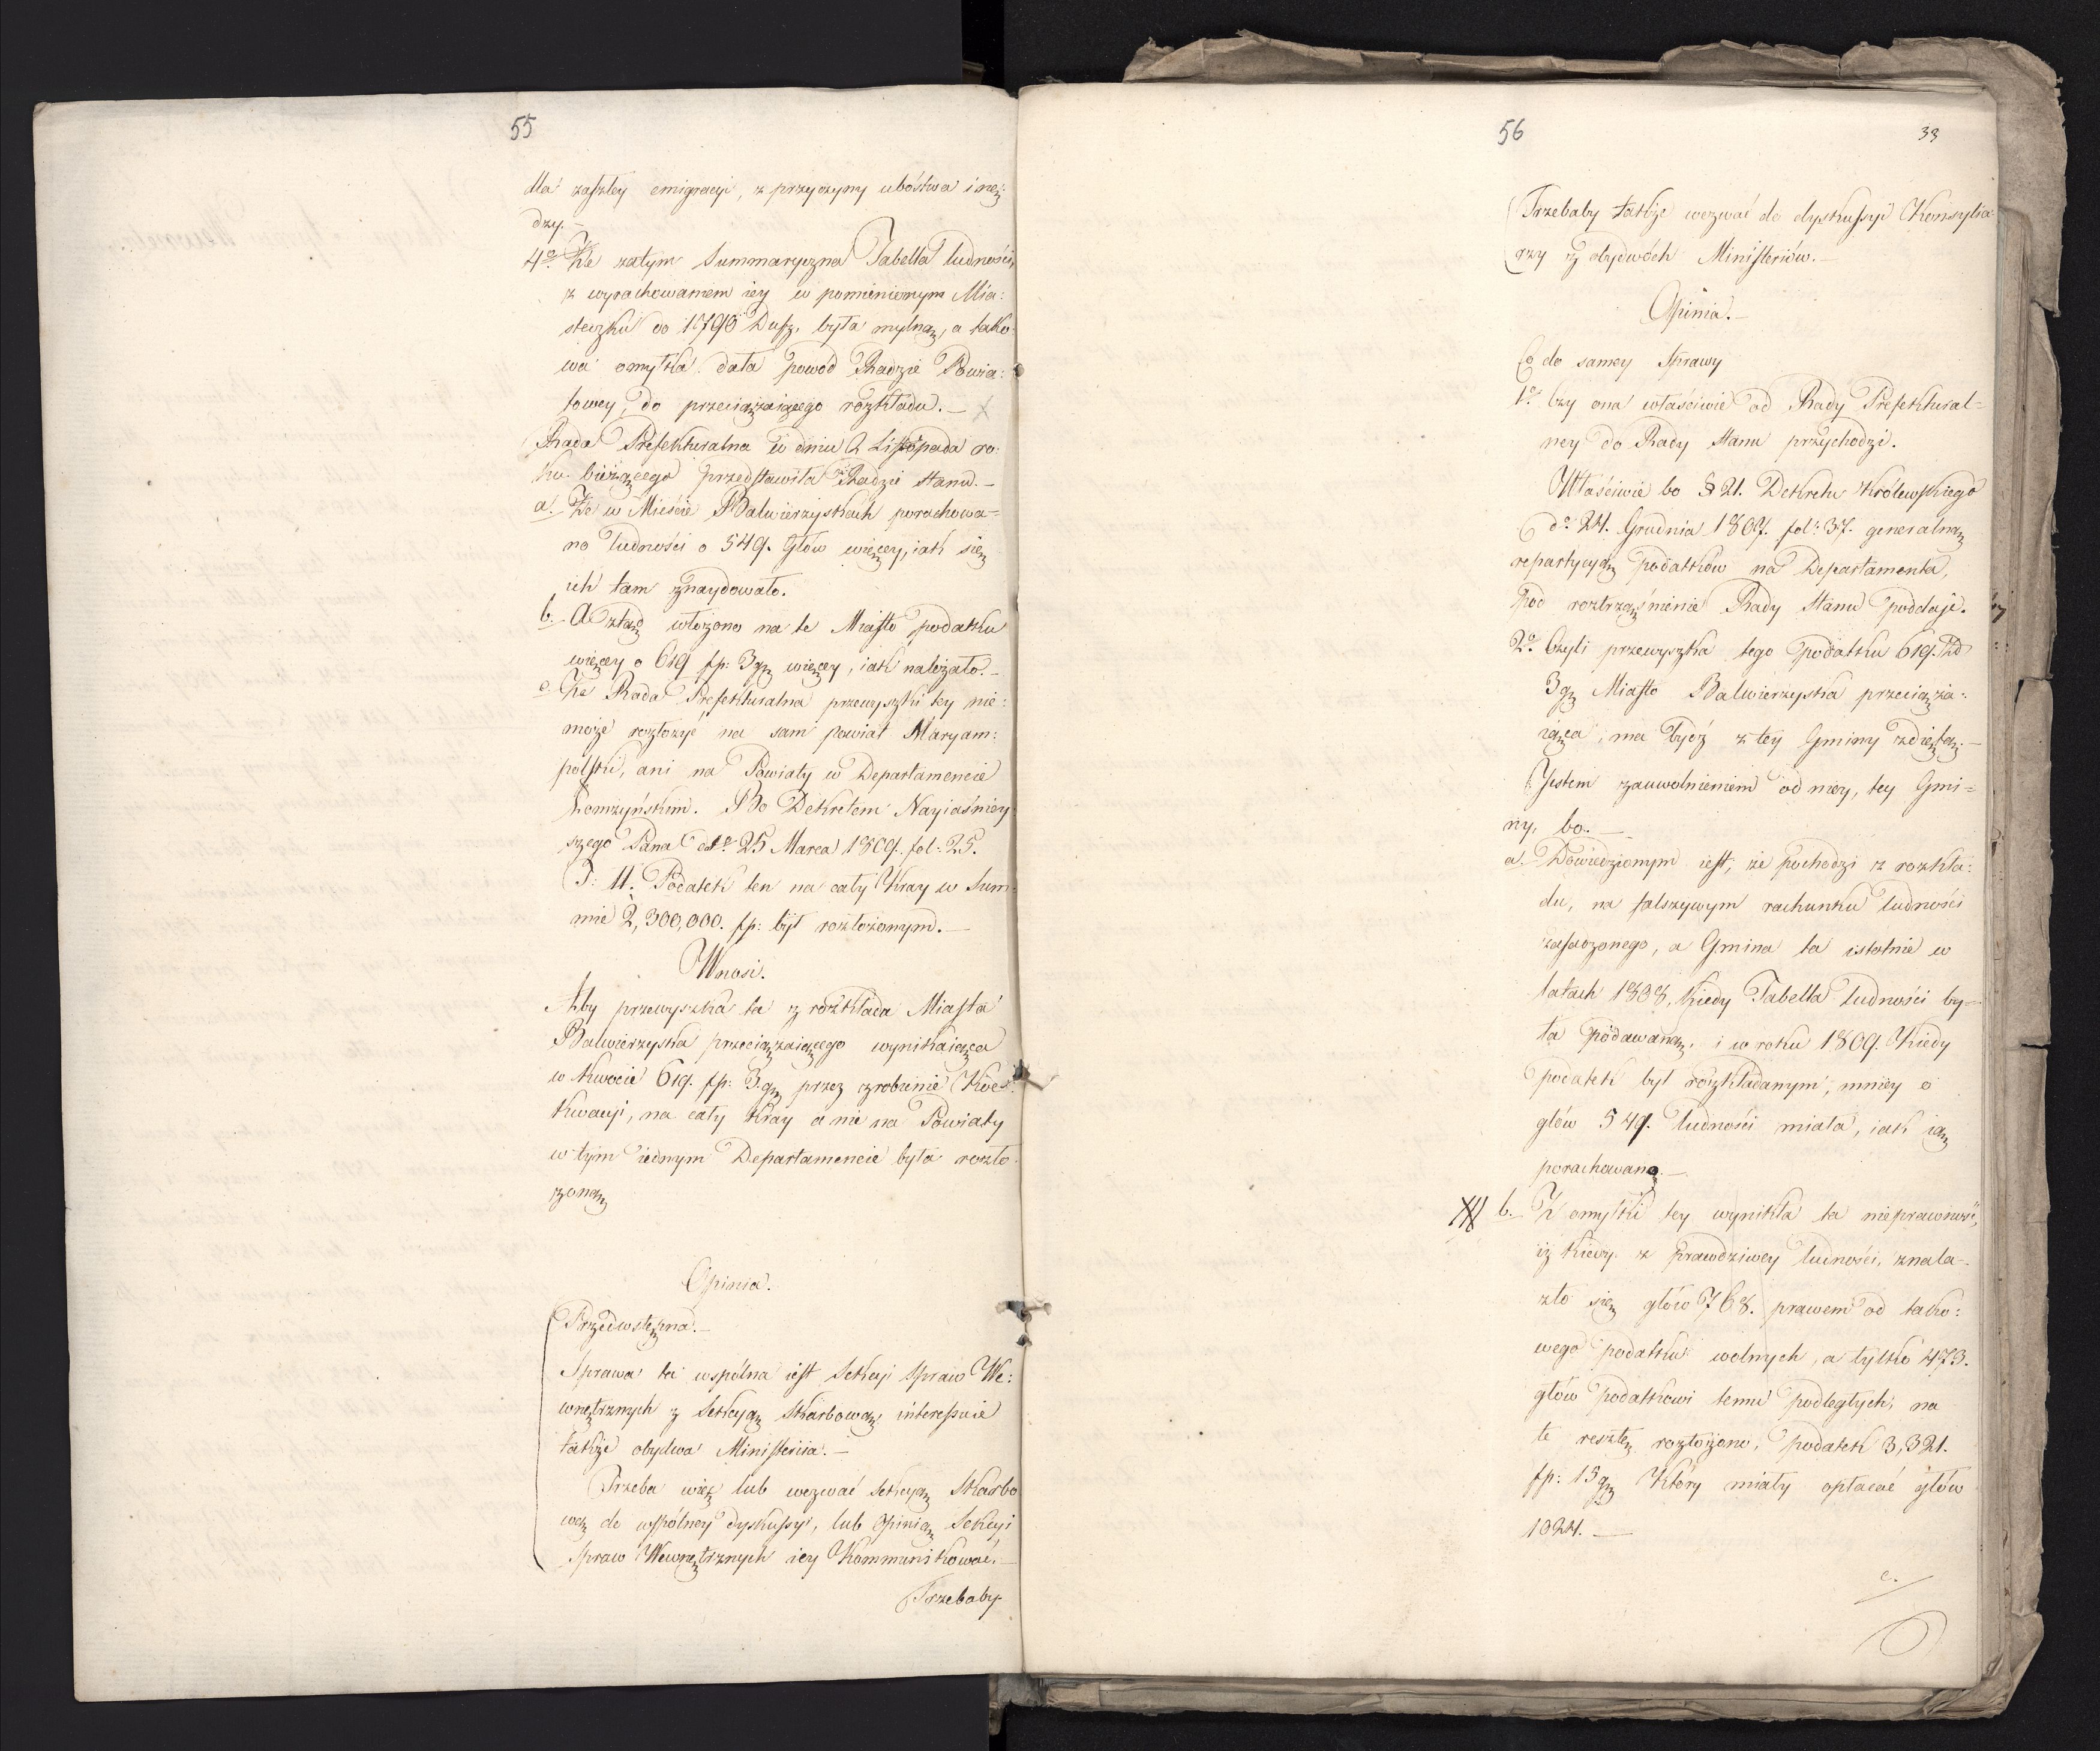 55
dla zaszłey emigracyi, z przyczyny ubóstwa i nę:
dzy.—
4o. Że zatym Summaryczna Tabella ludności,
z wyrachowaniem iey w pomienionym Mia:
steczku do 1790 Dusz, była mylną, a tako:
wa omyłka dała powód Radzie Powia:
towey, do przeciążaiącego rozkładu.—
Rada Prefekturalna w dniu 2 Listopada ro:
ku bieżącego przedstawiła Radzie Stanu.—
a. Że w Mieście Balwierzyskach porachowa=
no ludności o 549. Głów więcey, iak się
ich tam znaydowało.
b. A ztąd włożono na te Miasto podatku
więcey o 619 fp: 3 gr więcey, iak należało.—
c. Że Rada Prefekturalna przewyszki tey nie:
może rozłożyć na sam powiat Maryam:
polski, ani na Powiaty w Departamencie
Łomżyńskim. Bo Dekretem Nayiaśniey
szego Pana dto 25 Marca 1809. fol: 25.
T: 11. Podatek ten na cały Kray w Sum:
mie 2,300,000. fp: był rozłożonym.—
Wnosi.
Ażby przewyszka ta z rozkłada Miasta
Balwierzyska przeciążaiącego wynikaiąca
w kwocie 619. fp: 3. gr przez zrobienie Koe:
kwacyi, na cały Kray a nie na Powiaty
w tym iednym Departamencie była rozło
żoną
Opinia.
Przedwstępna.—
Sprawa ta wspólna iest Sekcyi Spraw We:
wnętrznych z Sekcyą Skarbową, interessuie
także obydwa Ministeriia.—
Trzeba więc lub wezwać Sekcyą Skarbo
wą do wspólney dyskussyi, lub Opinią Sekcyi
Spraw Wewnętrznych iey Kommunikować.—
Trzebaby
56
33
Trzebaby także wezwać do dyskussyi Konsylia:
rzy z obydwóch Ministeriów.—
Opinia.—
Co do samey Sprawy
1o. Czy ona właściwie od Rady Prefektural=
ney do Rady Stanu przychodzi.
Właściwie bo § 21. Dekretu Królewskiego
do 24. Grudnia 1807. fol: 37. generalną
repartycyą podatków na Departamenta,
pod roztrząśnienie Rady Stanu poddaje.
2o. Czyli przewyszka tego podatku 619. Zł
3 gr Miasto Balwierzyska przeciąża:
iąca, ma bydź z tey Gminy zdiętą.—
Jestem zauwolnieniem od niey, tey Gmi=
ny, bo.—
a. Dowiedzionym iest, że pochodzi z rozkła:
du, na falszywym rachunku ludności
zasadzonego, a Gmina ta istotnie w
latach 1808, kiedy Tabella ludności by=
ła podawaną, i w roku 1809. Kiedy
podatek był rozkładanym, mniey o
głów 549. ludności miała, iak ią
porachowano.—
b. Z omyłki tey wynikła ta nieprawność,
iż kiedy z prawdziwey ludności, znala=
zło się głów 768. prawem od tako:
wego podatku wolnych, a tylko 473.
głów podatkowi temu podległych, na
te resztę rozłożono, podatek 3,321.
fp: 13 gr Który miały opłacać głów
1024.—
c.